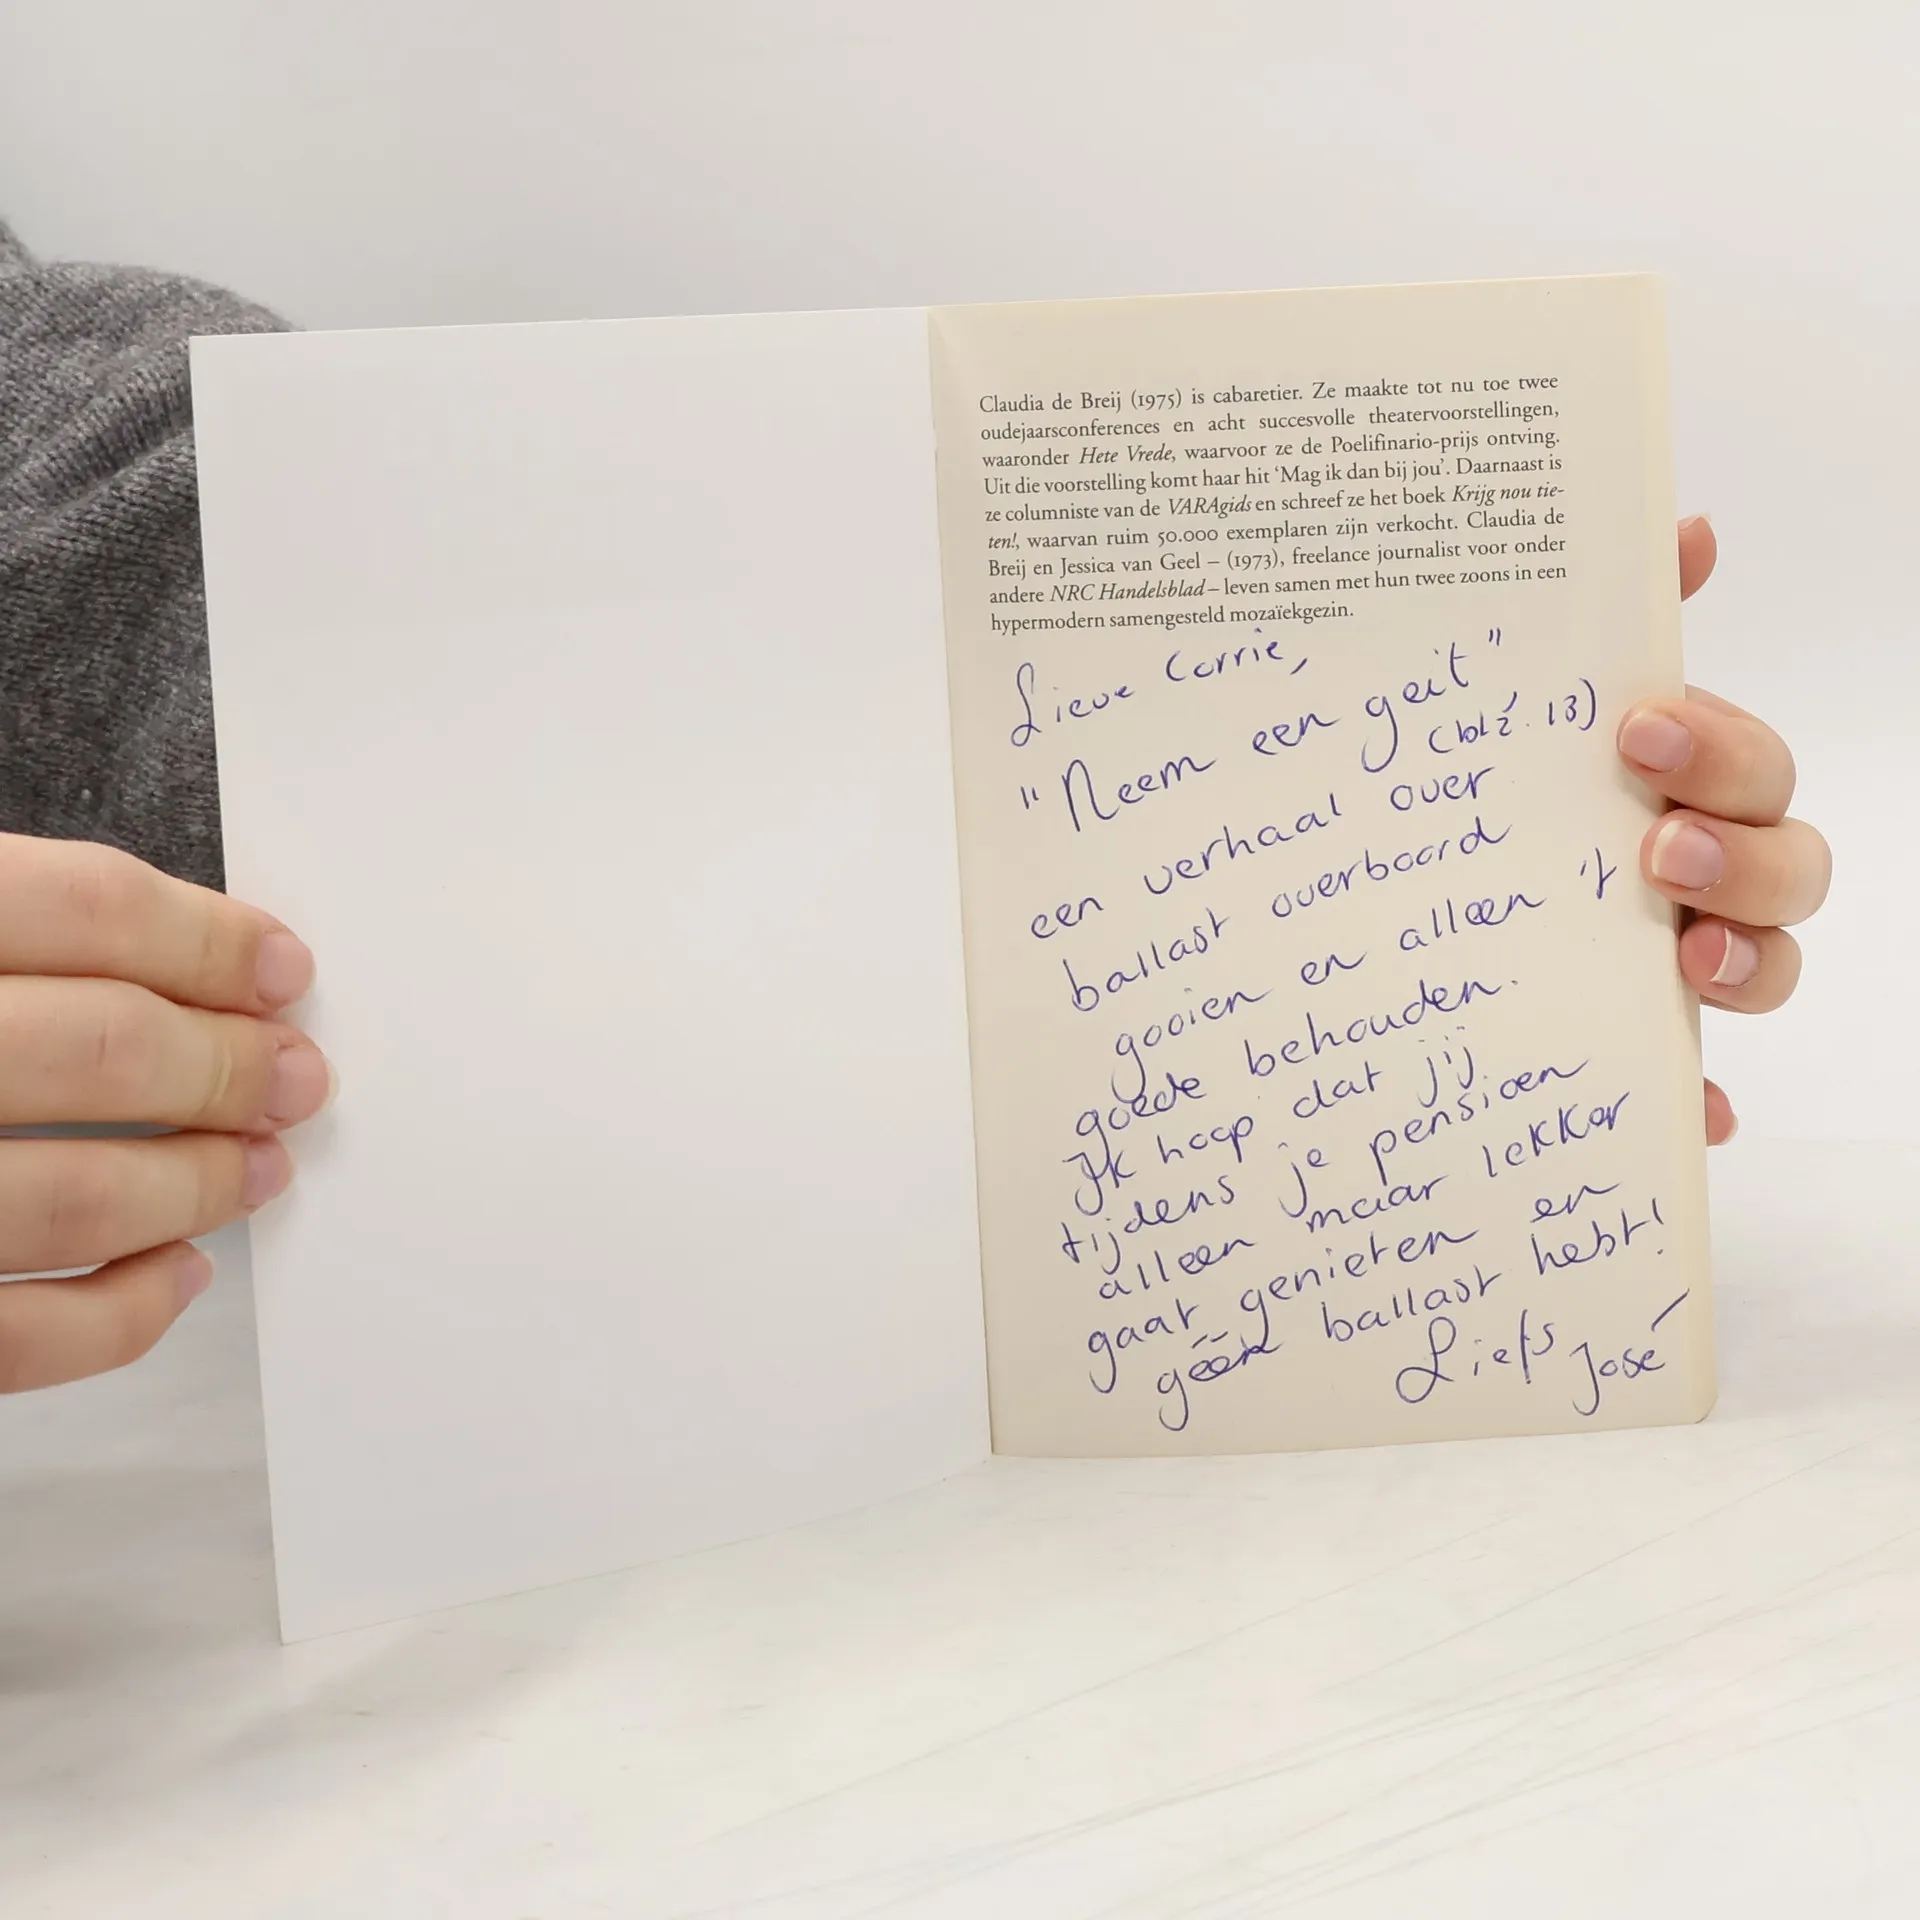 Claudia de Breij (1975) is cabaretier. Ze maakte tot nu toe twee
oudejaarsconferences en acht succesvolle theatervoorstellingen,
waaronder Hete Vrede, waarvoor ze de Poelifinario-prijs ontving.
Uit die voorstelling komt haar hit ‘Mag ik dan bij jou’. Daarnaast is
ze columniste van de VARAgids en schreef ze het boek Krijg nou tie-
ten!, waarvan ruim 50.000 exemplaren zijn verkocht. Claudia de
Breij en Jessica van Geel – (1973), freelance journalist voor onder
andere NRC Handelsblad – leven samen met hun twee zoons in een
hypermodern samengesteld mozaïekgezin.
Lieve Corrie,
"Neem een geit"
(blz. 13)
een verhaal over
ballast overboord
gooien en alleen 't
goede behouden.
Ik hoop dat jij
tijdens je pensioen
alleen maar lekker
gaat genieten en
géén ballast hebt!
Liefs José